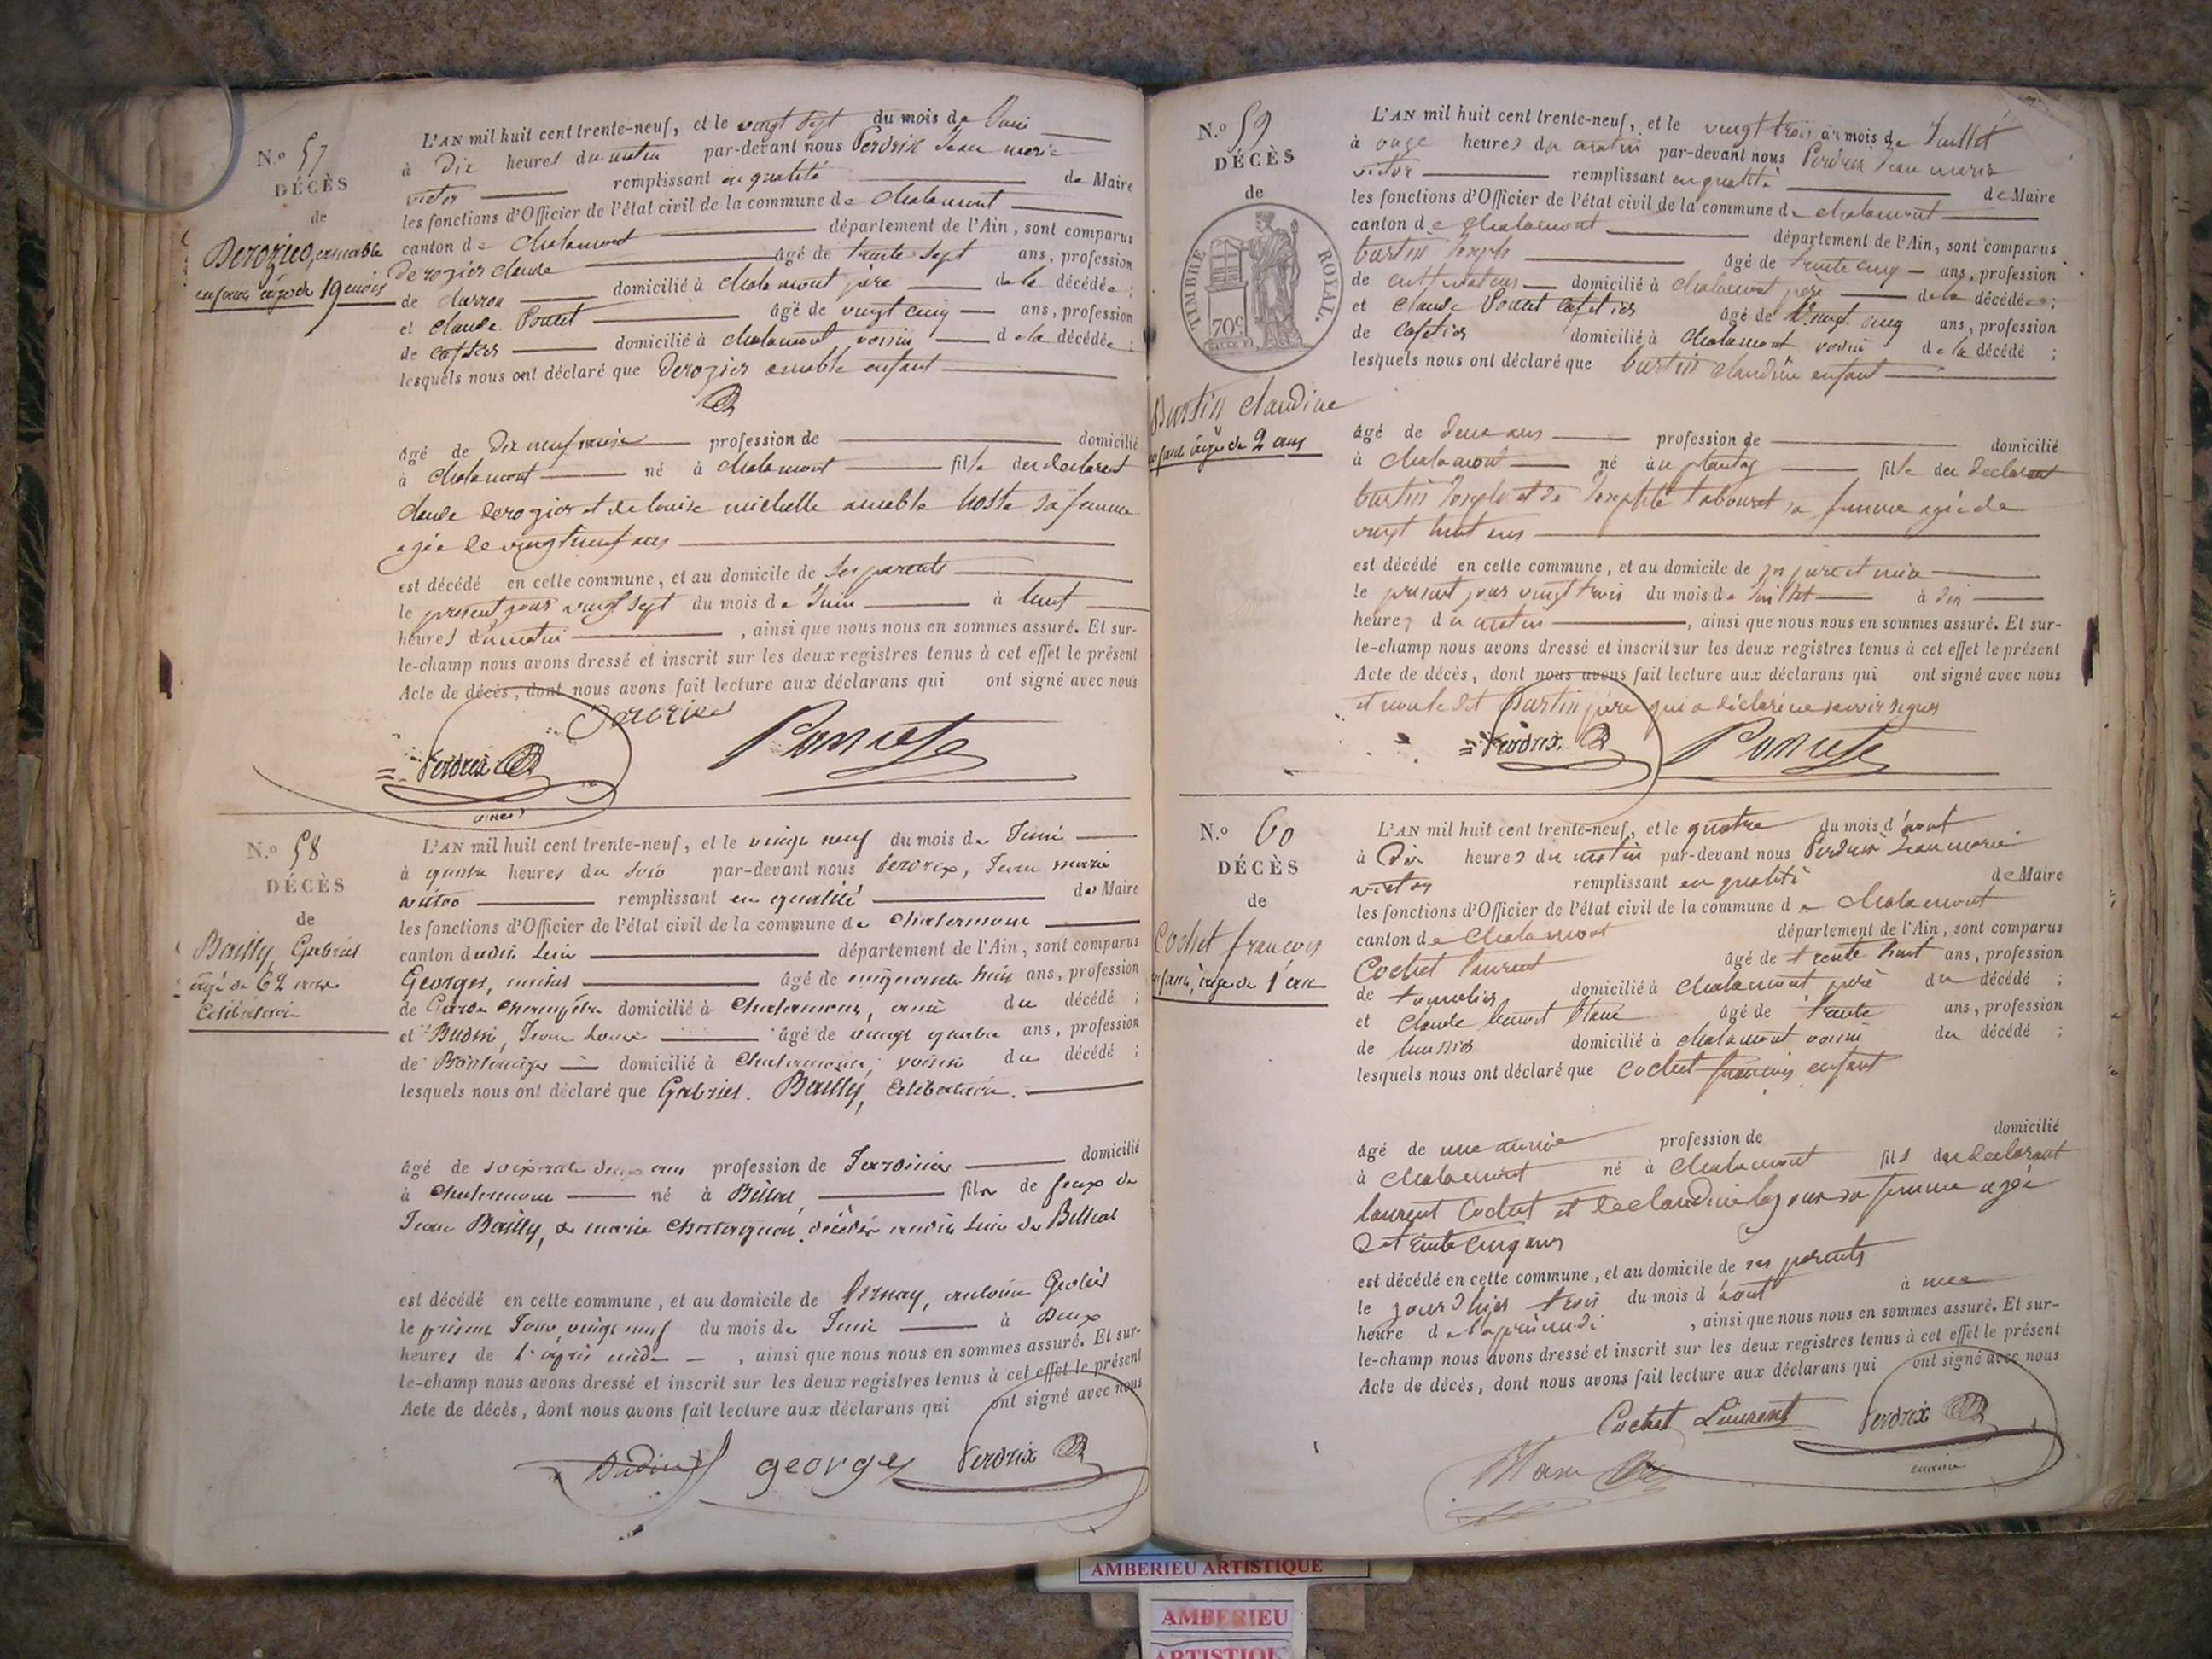 N.o 57
DÉCÈS
de
Derozier, amable
enfant âgé de 19 mois
L'AN mil huit cent trente-neuf, et le vingt sept du mois de Juin
à Dix heures du matin par-devant nous Perdrix Jean marie
victor remplissant en qualité de Maire
les fonctions d'Officier de l'état civil de la commune de chalamont
canton de chalamont département de l'Ain, sont comparus
Derozier claude âgé de trente sept ans, profession
de charron domicilié à chalamont père de la décédée ;
et claude âgé de vingt cinq ans, profession
de cafetier domicilié à chalamont voisin de la décédée ;
lesquels nous ont déclaré que Derozier amable enfant
âgé de Dix neuf mois profession de domicilié
à chalamont né à chalamont fille du declarant
claude derozier et de louise michelle amable hoste sa femme
agée de vingt neuf ans
est décédé en cette commune, et au domicile de ses parents
le présent jour vingt sept du mois de Juin à huit
heures du matin , ainsi que nous nous en sommes assuré. Et sur-
le-champ nous avons dressé et inscrit sur les deux registres tenus à cet effet le présent
Acte de décès, dont nous avons fait lecture aux déclarans qui ont signé avec nous
Perdrix
N.o 58
DÉCÈS
de
Bailly, Gabriel
âgé de 62 ans
Célibataire
L'AN mil huit cent trente-neuf, et le vingt neuf du mois de Juin
à quatre heures du soir par-devant nous Perdrix, Jean marie
victor remplissant en qualité de Maire
les fonctions d'Officier de l'état civil de la commune de Chalamont
canton dudit lieu département de l'Ain, sont comparus
Georges, âgé de cinquante huit ans, profession
de Garde Champêtre domicilié à Chalamont, ami du décédé ;
et Jean Louis âgé de vingt quatre ans, profession
de Boulanger domicilié à Chalamont, voisin du décédé ;
lesquels nous ont déclaré que Gabriel Bailly, Célibataire.
âgé de soixante deux ans profession de Jardinier domicilié
à Chalamont né à fils de feux de
Jean Bailly, & marie décédés audit lieu de
est décédé en cette commune, et au domicile de Vernay, antoine
le présent Jour, vingt neuf du mois de Juin à Deux
heures de l'après midi , ainsi que nous nous en sommes assuré. Et sur-
le-champ nous avons dressé et inscrit sur les deux registres tenus à cet effet le présent
Acte de décès, dont nous avons fait lecture aux déclarans qui ont signé avec nous
georges Perdrix
N.o 59
DÉCÈS
de
TIMBRE ROYAL.
70c
Burtin claudine
enfant âgée de 2 ans
L'AN mil huit cent trente-neuf, et le vingt trois du mois de Juillet
à onze heures du matin par-devant nous Perdrix Jean marie
victor remplissant en qualité de Maire
les fonctions d'Officier de l'état civil de la commune de chalamont
canton de chalamont département de l'Ain, sont comparus
burtin Joseph âgé de trente cinq ans, profession
de cultivateur domicilié à chalamont père de la décédée ;
et claude cafetier âgé de vingt cinq ans, profession
de cafetier domicilié à chalamont voisin de la décédé ;
lesquels nous ont déclaré que burtin claudine enfant
âgé de deux ans profession de domicilié
à chalamont né au plantay fille du déclarant
burtin Joseph et de Josephte tabouret sa femme agée de
vingt huit ans
est décédé en cette commune, et au domicile de ses père et mère
le présent jour vingt trois du mois de Juillet à dix
heures du matin , ainsi que nous nous en sommes assuré. Et sur-
le-champ nous avons dressé et inscrit sur les deux registres tenus à cet effet le présent
Acte de décès, dont nous avons fait lecture aux déclarans qui ont signé avec nous
et non le dit Burtin père qui a déclaré ne savoir signer
Perdrix
N.o 60
DÉCÈS
de
Cochet françois
enfant, âgé de 1 an
L'AN mil huit cent trente-neuf, et le quatre du mois d'août
à Dix heures du matin par-devant nous Perdrix Jean marie
victor remplissant en qualité de Maire
les fonctions d'Officier de l'état civil de la commune de chalamont
canton de chalamont département de l'Ain, sont comparus
Cochet laurent âgé de trente huit ans, profession
de tonnelier domicilié à chalamont père du décédé ;
et claude benoit âgé de trente ans, profession
de huissier domicilié à chalamont voisin du décédé ;
lesquels nous ont déclaré que cochet françois enfant
âgé de une année profession de domicilié
à chalamont né à chalamont fils du declarant
laurent Cochet et de claudine sa femme agée
de trente cinq ans
est décédé en cette commune, et au domicile de ses parents
le jour d'hier trois du mois d'août à une
heure de l'après midi , ainsi que nous nous en sommes assuré. Et sur-
le-champ nous avons dressé et inscrit sur les deux registres tenus à cet effet le présent
Acte de décès, dont nous avons fait lecture aux déclarans qui ont signé avec nous
Cochet Laurent Perdrix
AMBERIEU ARTISTIQUE
AMBERIEU
ARTISTIQU